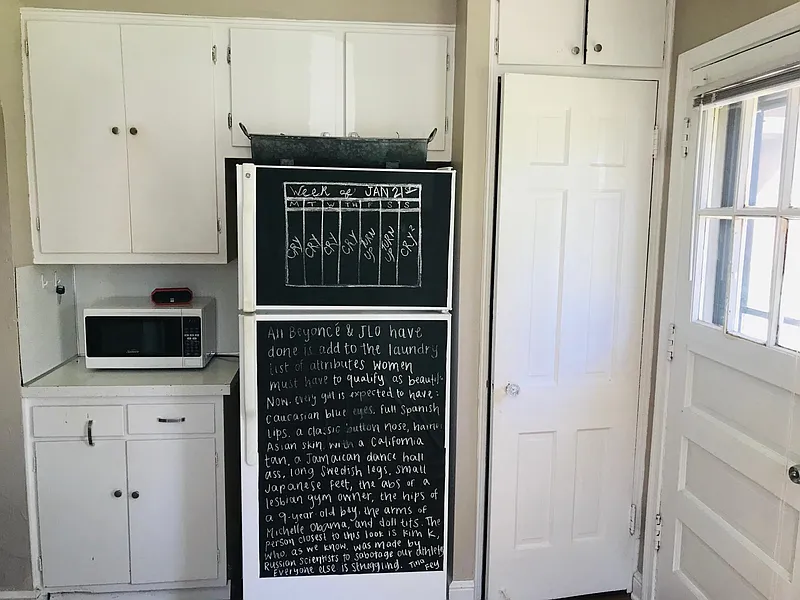 Week of JAN 21st
M T W TH F S S
CRY CRY CRY CRY TURN UP TURN UP CRY?
All Beyoncé & JLO have
done is add to the laundry
list of attributes women
must have to qualify as beautiful
Now, every girl is expected to have:
caucasian blue eyes, full Spanish
lips, a classic button nose, hairless
Asian skin, with a California
tan, a Jamaican dance hall
ass, long Swedish legs, small
Japanese feet, the abs of a
lesbian gym owner, the hips of
a 9-year old boy, the arms of
Michelle Obama, and doll tits. The
person closest to this look is Kim K,
Who, as we know, was made by
Russian scientists to sabotage our athletes
Everyone else is struggling. Tina
Fey